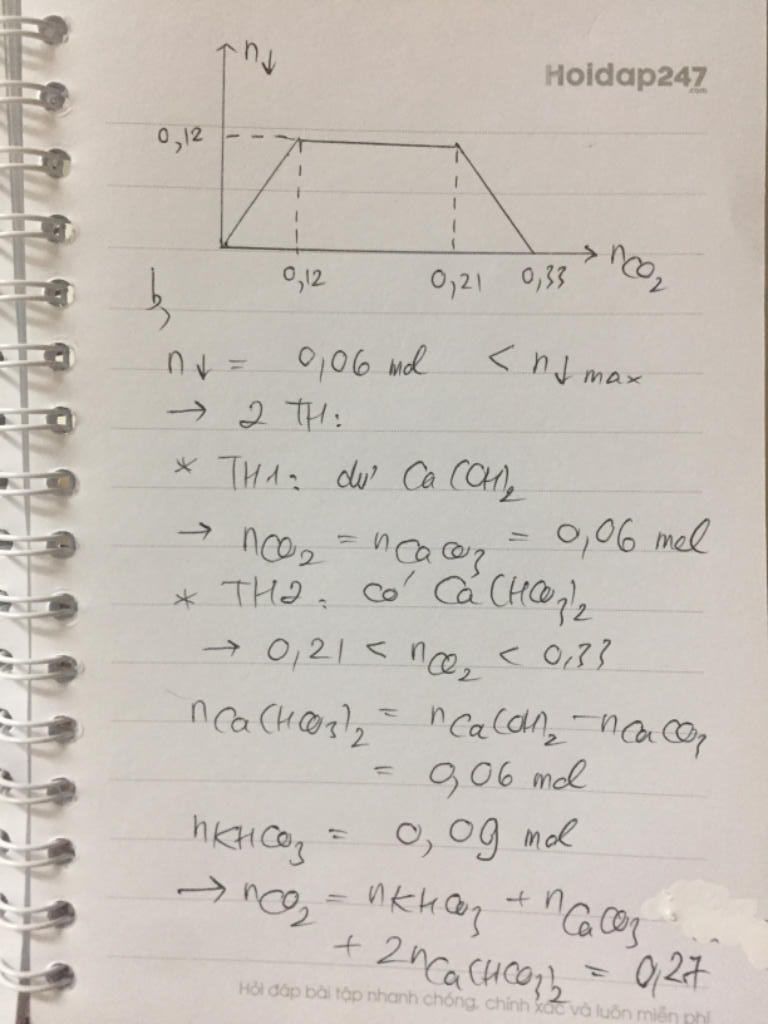 n↓
Hoidap247
.com
0,12
0,12 0,21 0,33 nCO₂
b,
n↓ = 0,06 mol < n↓ max
→ 2 TH:
* TH1: dư Ca(OH)₂
→ nCO₂ = nCaCO₃ = 0,06 mol
* TH2: có Ca(HCO₃)₂
→ 0,21 < nCO₂ < 0,33
nCa(HCO₃)₂ = nCa(OH)₂ − nCaCO₃
= 0,06 mol
nKHCO₃ = 0,09 mol
→ nCO₂ = nKHCO₃ + nCaCO₃
+ 2nCa(HCO₃)₂ = 0,27
Hỏi đáp bài tập nhanh chóng, chính xác và luôn miễn phí